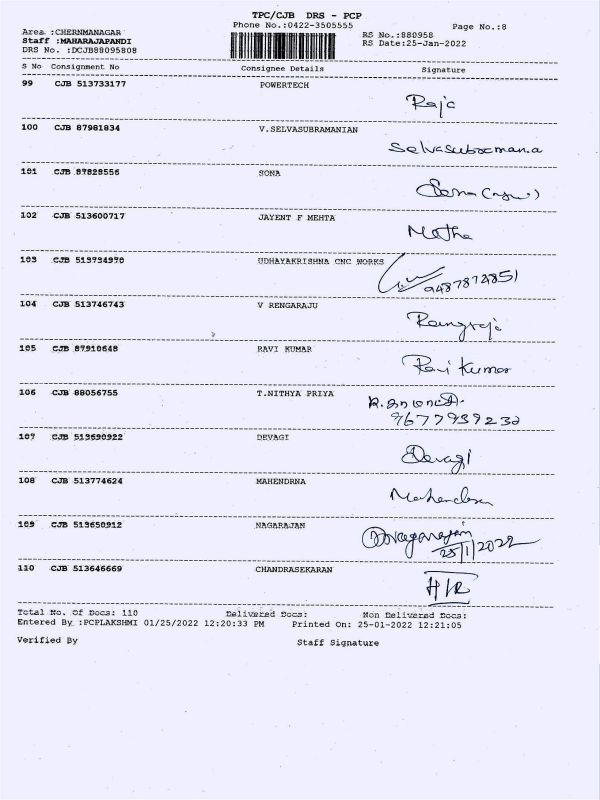 TPC/CJB DRS - PCP
Phone No.:0422-3505555
Page No.:8
Area :CHERNMANAGAR
RS No.:880958
Staff :MAHARAJAPANDI
RS Date:25-Jan-2022
DRS No. :DCJB88095808
S No Consignment No Consignee Details Signature
99 CJB 513733177 POWERTECH
Raja
100 CJB 87981834 V.SELVASUBRAMANIAN
Selvasubramania
101 CJB 87828556 SONA
Sona
102 CJB 513600717 JAYENT F MEHTA
Metha
103 CJB 513734970 UDHAYAKRISHNA CNC WORKS
9487874851
104 CJB 513746743 V RENGARAJU
Rengraja
105 CJB 87910648 RAVI KUMAR
Ravi Kumar
106 CJB 88056755 T.NITHYA PRIYA
9677939232
107 CJB 513690922 DEVAGI
Devagi
108 CJB 513774624 MAHENDRNA
109 CJB 513650912 NAGARAJAN
Nagarajan
25/1/2022
110 CJB 513646669 CHANDRASEKARAN
H/R
Total No. Of Docs: 110 Delivered Docs: Non Delivered Docs:
Entered By :PCPLAKSHMI 01/25/2022 12:20:33 PM Printed On: 25-01-2022 12:21:05
Verified By Staff Signature